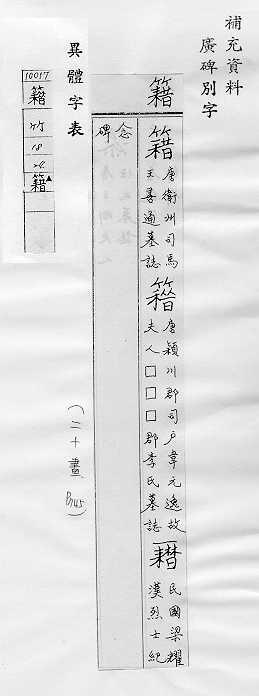 補充資料
廣碑別字
籍
籍 唐衛州司馬王善通墓誌
籍 唐潁川郡司戶韋元逸故夫人□□□郡李氏墓誌
耤 民國梁耀漢烈士紀念碑
(二十畫 P745)
異體字表
10017
籍
竹
18
24
籍▲